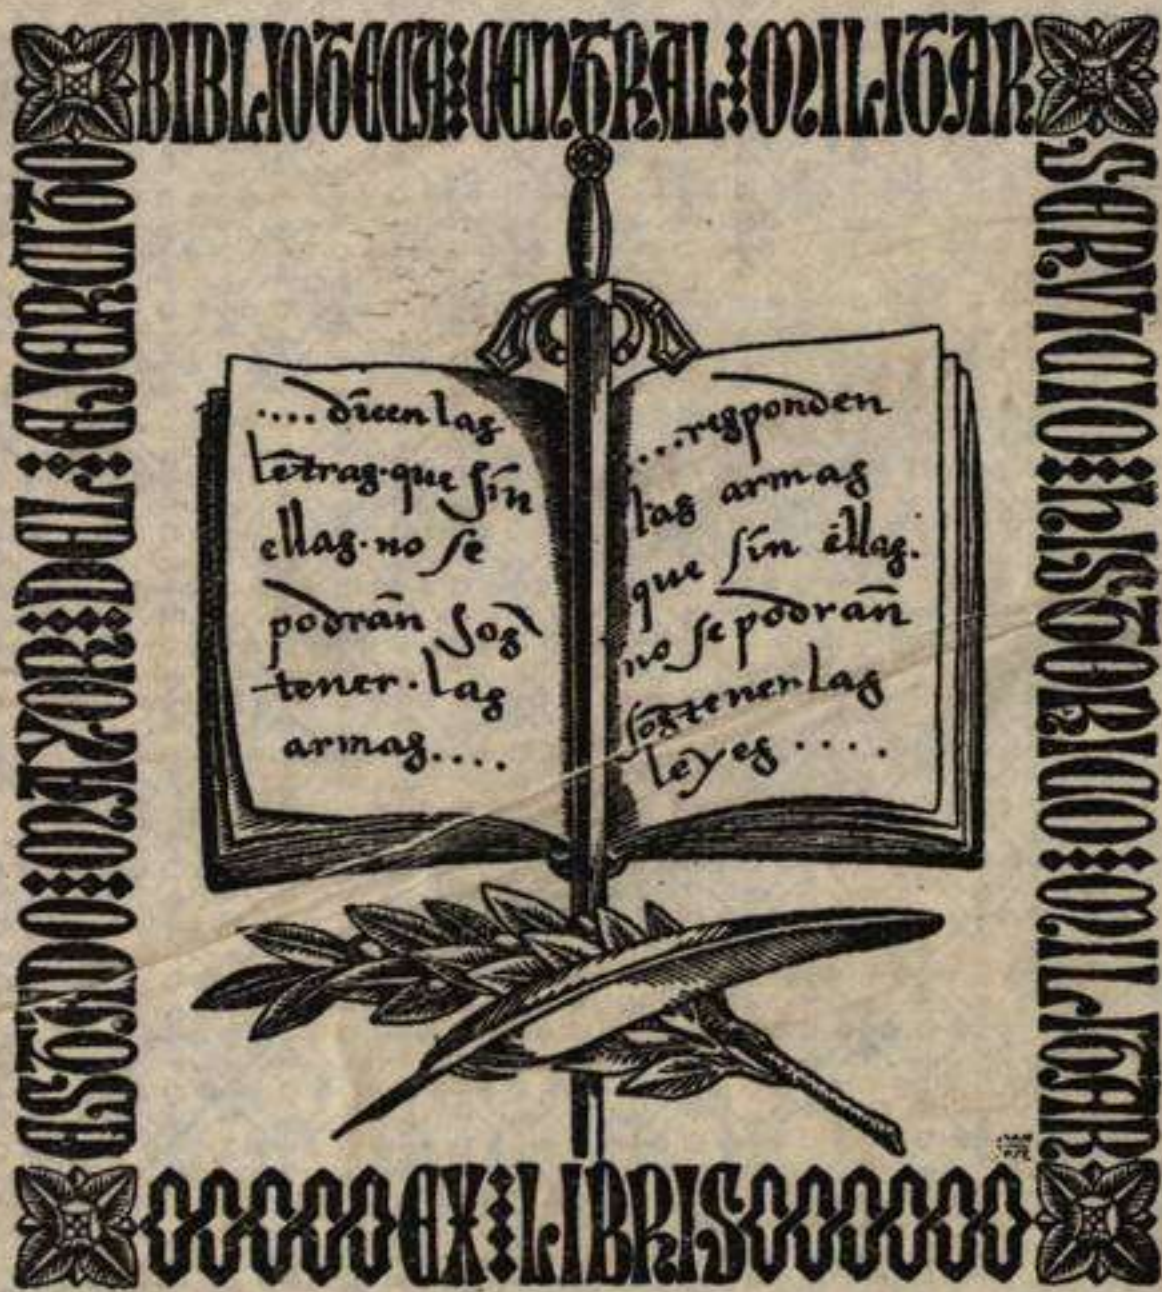 BIBLIOTECA CENTRAL MILITAR
SERVICIO HISTORICO MILITAR
ESTADO MAYOR DEL EJERCITO
.... dicen las
letras que sin
ellas no se
podrán sos
tener las
armas....
...responden
las armas
que sin ellas.
no se podrán
sostener las
leyes ....
EX LIBRIS